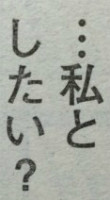 …私と
したい？